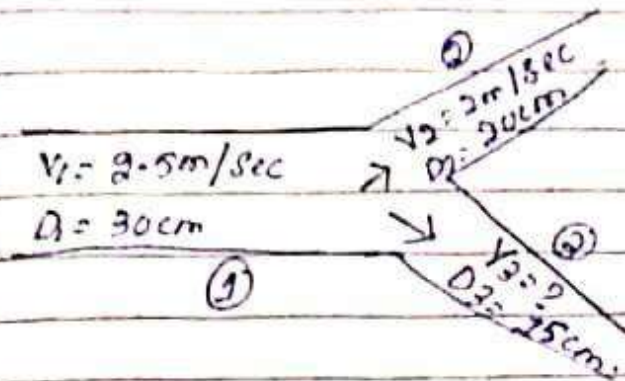 ②
V2= 2m/Sec
D2= 20cm
V1= 2.5m/Sec
D1= 30cm
①
②
V3= ?
D3= 15cm.